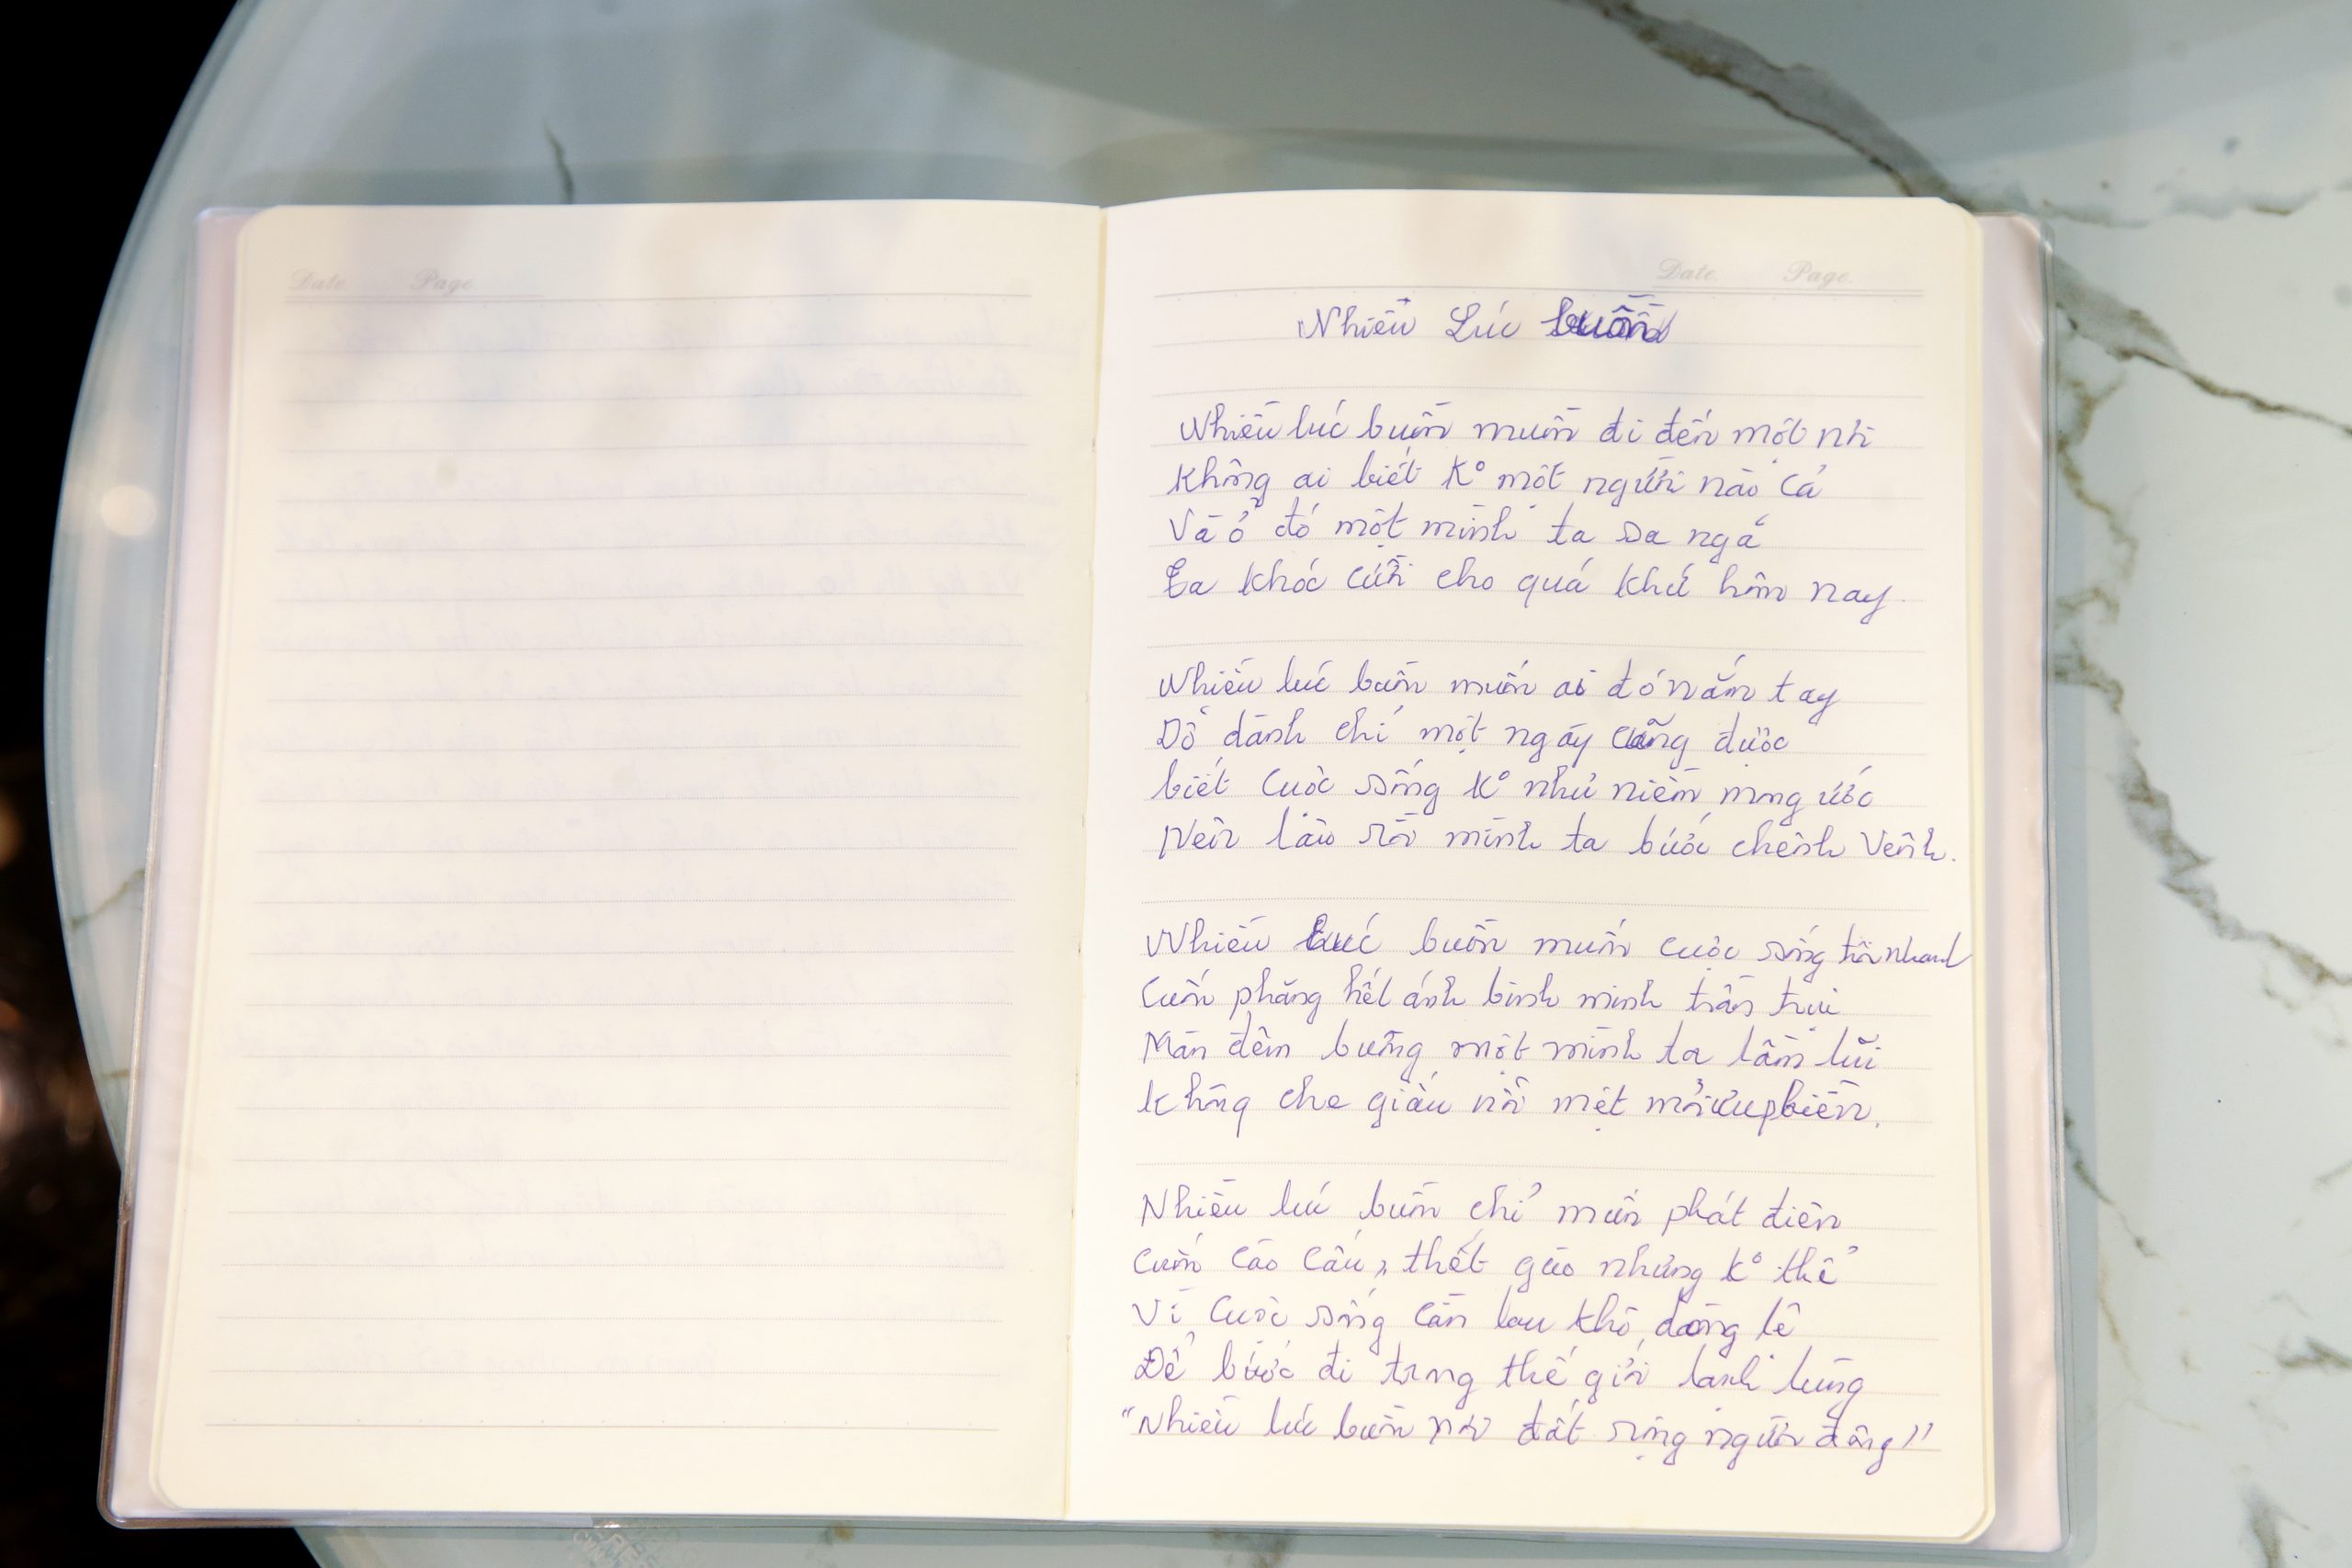 Date. Page.
Date. Page.
Nhiều Lúc buồn
Nhiều lúc buồn muốn đi đến một nơi
Không ai biết K° một người nào cả
Và ở đó một mình ta sa ngã
Ta khóc cười cho quá khứ hôm nay.
Nhiều lúc buồn muốn ai đó nắm tay
Dỗ dành chỉ một ngày cũng được
biết cuộc sống K° như niềm mong ước
Nên lâu rồi mình ta bước chênh vênh.
Nhiều lúc buồn muốn cuộc sống trôi nhanh
Cuốn phăng hết ánh bình minh trần trụi
Màn đêm buông một mình ta lầm lũi
Không che giấu nỗi mệt mỏi ưu phiền.
Nhiều lúc buồn chỉ muốn phát điên
Cuồn cào cấu, thét gào nhưng K° thể
Vì cuộc sống cần lau khô dòng lệ
Để bước đi trong thế giới lạnh lùng
"Nhiều lúc buồn nơi đất rộng người đông"